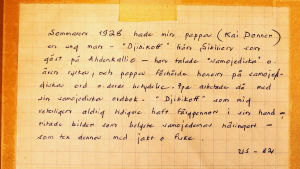 Sommaren 1928 hade min pappa (Kai Donner)
en ung man – "Djibikoff" från Sibirien som
gäst på – han talade "samojediska" o
även ryska, och pappa förhörde honom på samojed-
iska ord o deras betydelse. Ppa arbetade då med
sin samojediska ordbok. "Djibikoff" som mig
veterligen aldrig tidigare haft färgpennor i sin hand –
ritade bilder som belyste samojedernas näringar –
som t.ex. dennas med jakt o fiske.